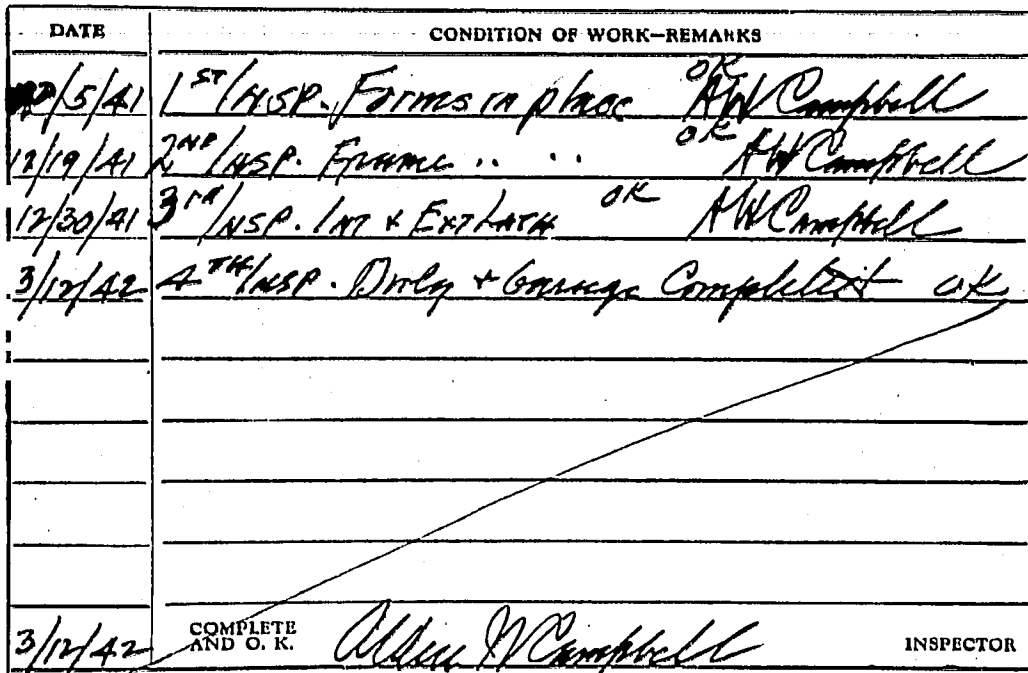 DATE CONDITION OF WORK—REMARKS
12/5/41 1ST INSP. Forms in place OK AW Campbell
12/19/41 2ND INSP. Frame " " OK AW Campbell
12/30/41 3RD INSP. INT & EXT LATH OK AW Campbell
3/12/42 4TH INSP. Dwlg & Garage Completed OK
3/12/42 COMPLETE AND O. K. W Campbell INSPECTOR